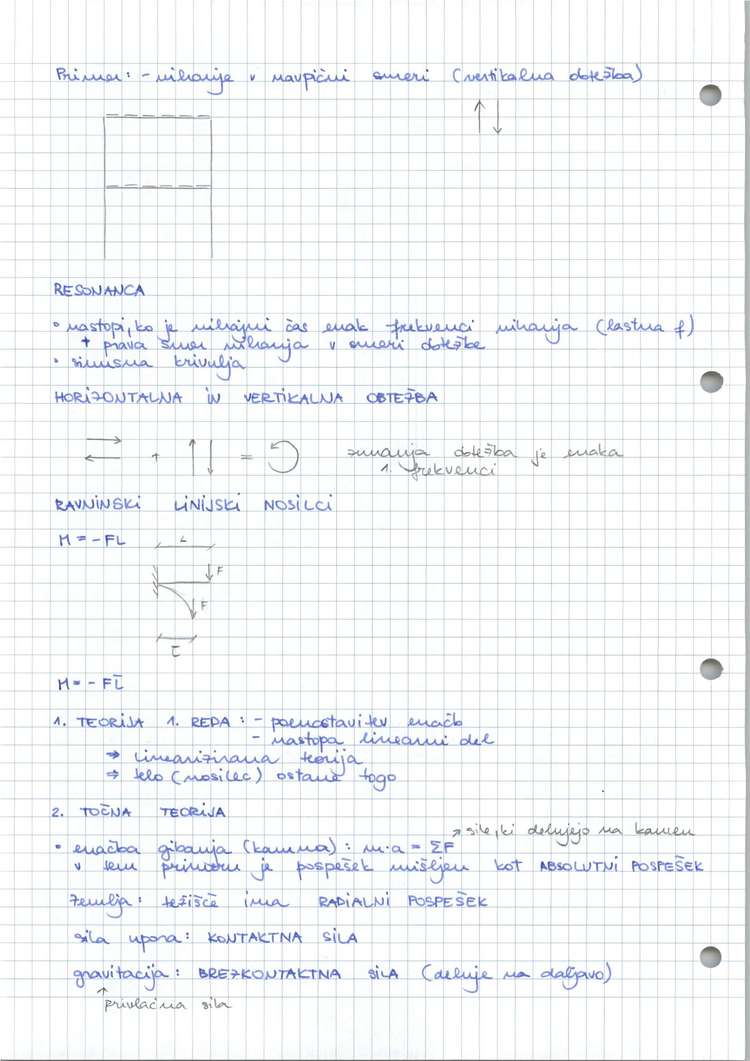 Primer: - nihanje v navpični smeri (vertikalna obtežba)
RESONANCA
• nastopi, ko je nihajni čas enak frekvenci nihanja (lastna f)
+ prava smer nihanja v smeri obtežbe
• sinusna krivulja
HORIZONTALNA IN VERTIKALNA OBTEŽBA
+ = zunanja obtežba je enaka
1. frekvenci
RAVNINSKI LINIJSKI NOSILCI
M = -FL
L
F
F
L̄
M = - FL̄
1. TEORIJA 1. REDA : - poenostavitev enačb
- nastopa linearni del
⇒ linearizirana teorija
⇒ telo (nosilec) ostane togo
2. TOČNA TEORIJA
↗ sile, ki delujejo na kamen
• enačba gibanja (kamna) : m·a = ΣF
v tem primeru je pospešek mišljen kot ABSOLUTNI POSPEŠEK
Zemlja : težišče ima RADIALNI POSPEŠEK
sila upora : KONTAKTNA SILA
gravitacija : BREZKONTAKTNA SILA (deluje na daljavo)
↑ privlačna sila